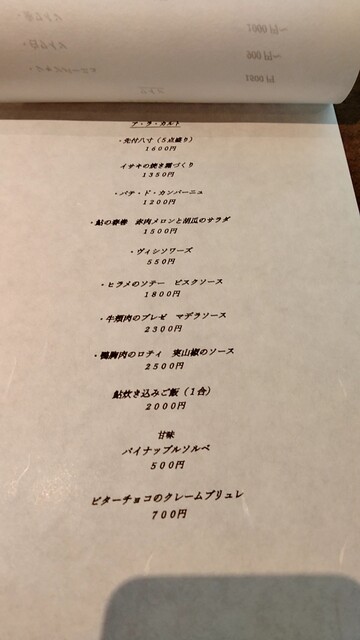 ア・ラ・カルト
・先付八寸（５点盛り）
１６００円
イサキの焼き霜づくり
１３５０円
・パテ・ド・カンパーニュ
１２００円
・鮎の春巻 赤肉メロンと胡瓜のサラダ
１５００円
・ヴィシソワーズ
５５０円
・ヒラメのソテー ビスクソース
１８００円
・牛頬肉のブレゼ マデラソース
２３００円
・鴨胸肉のロティ 実山椒のソース
２５００円
鮎炊き込みご飯（１合）
２０００円
甘味
パイナップルソルベ
５００円
ビターチョコのクレームブリュレ
７００円